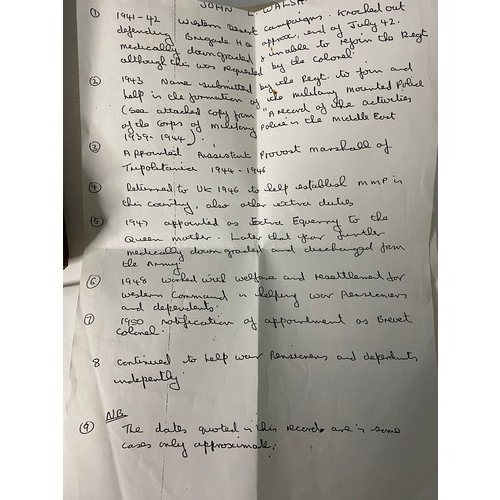 JOHN L WALSH
① 1941-42 Western Desert campaigns. Knocked out
defending Brigade H.Q approx, end of July 42.
medically down graded & unable to rejoin the Regt
although this was requested by the Colonel.
② 1943 Name submitted by the Regt. to join and
help in the formation of the military Mounted Police
(see attached copy from "A record of the activities
of the Corps of Military Police in the Middle East
1939-1944).
③ Appointed Assistent Provost Marshall of
Tripolitania 1944-1946
④ Returned to UK 1946 to help establish MMP in
this country, also other extra duties
⑤ 1947 appointed as Extra Equerry to the
Queen Mother. Later that year further
medically down graded and discharged from
the Army.
⑥ 1948 worked with welfare and resettlement for
Western Command in helping war Pensioners
and dependents.
⑦ 1950 notification of appointment as Brevet
Colonel.
8 Continued to help war Pensioners and dependants
independently
N.B.
⑨ The dates quoted in this record are in some
cases only approximate.